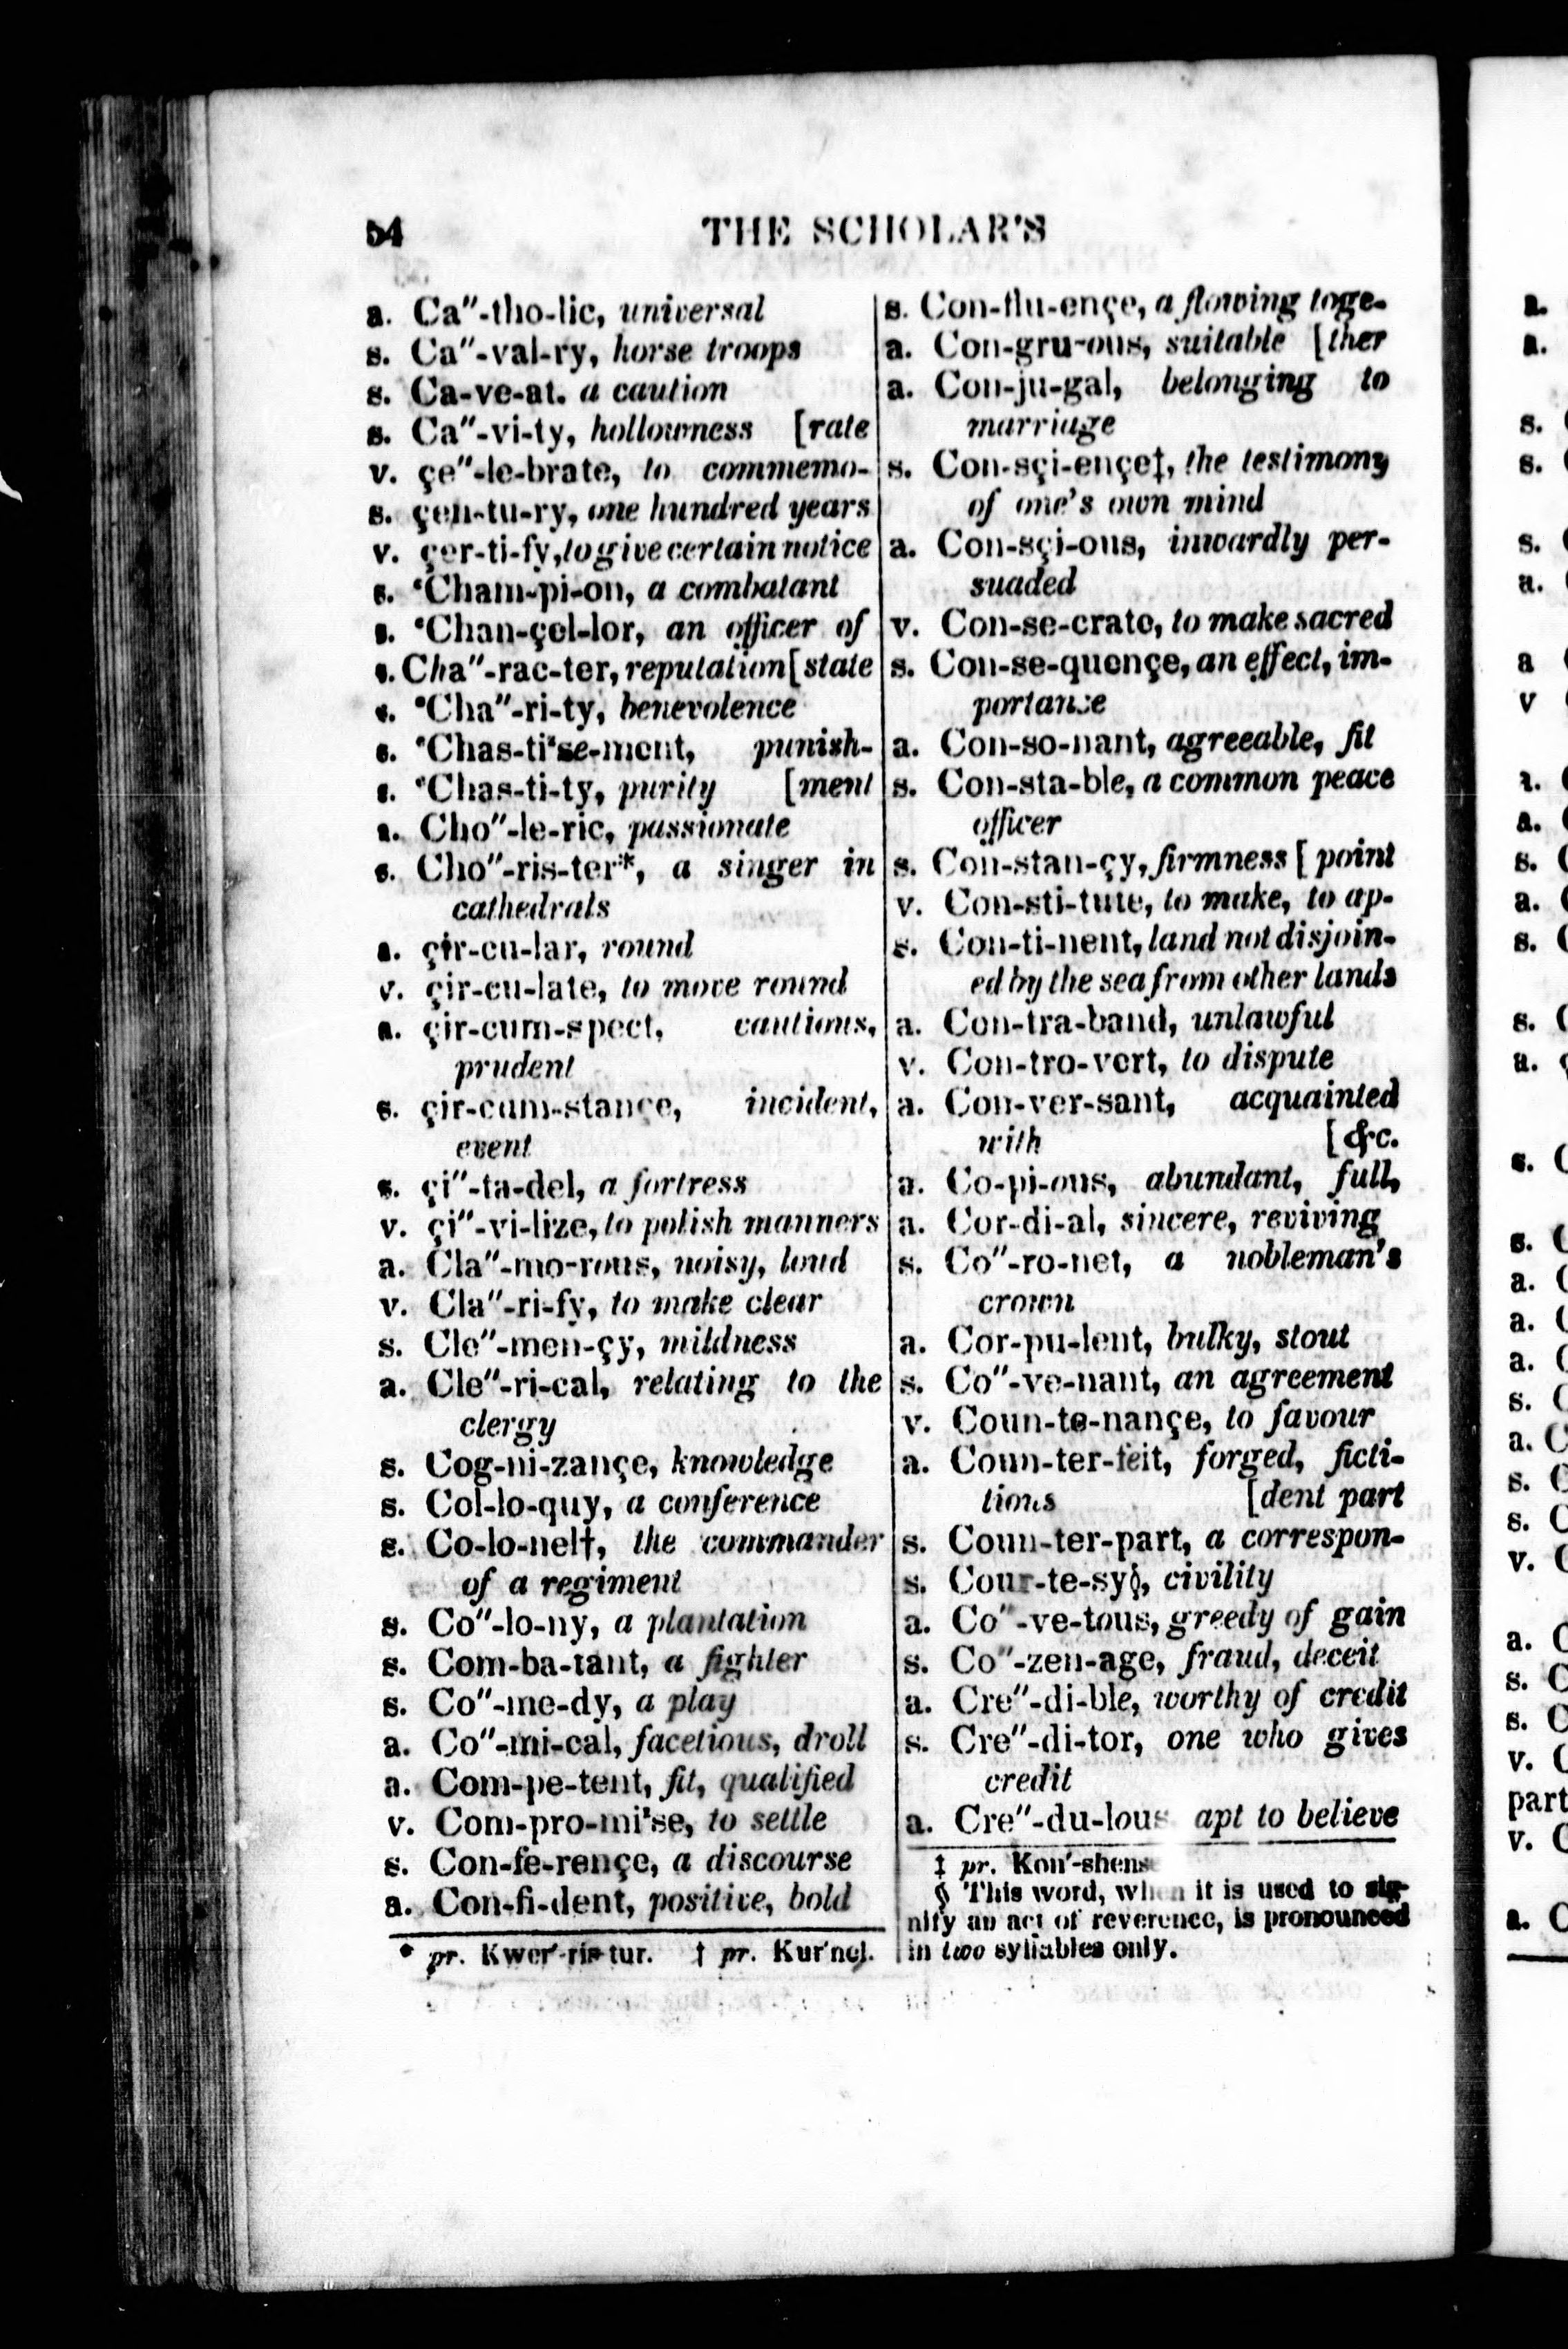 54 THE SCHOLAR'S
a. Ca"-tho-lic, universal
s. Ca"-val-ry, horse troops
s. Ca-ve-at. a caution
s. Ca"-vi-ty, hollowness [rate
v. çe"-le-brate, to commemo-
s. çen-tu-ry, one hundred years
v. çer-ti-fy, to give certain notice
s. *Cham-pi-on, a combatant
s. *Chan-çel-lor, an officer of
s. Cha"-rac-ter, reputation [state
s. *Cha"-ri-ty, benevolence
s. *Chas-ti'se-ment, punish-
s. *Chas-ti-ty, purity [ment
a. Cho"-le-ric, passionate
s. Cho"-ris-ter*, a singer in
cathedrals
a. çir-cu-lar, round
v. çir-cu-late, to move round
a. çir-cum-spect, cautious,
prudent
s. çir-cum-stançe, incident,
event
s. çi"-ta-del, a fortress
v. çi"-vi-lize, to polish manners
a. Cla"-mo-rous, noisy, loud
v. Cla"-ri-fy, to make clear
s. Cle"-men-çy, mildness
a. Cle"-ri-cal, relating to the
clergy
s. Cog-ni-zançe, knowledge
s. Col-lo-quy, a conference
s. Co-lo-nel†, the commander
of a regiment
s. Co"-lo-ny, a plantation
s. Com-ba-tant, a fighter
s. Co"-me-dy, a play
a. Co"-mi-cal, facetious, droll
a. Com-pe-tent, fit, qualified
v. Com-pro-mi'se, to settle
s. Con-fe-rençe, a discourse
a. Con-fi-dent, positive, bold
* pr. Kwer'-ris-tur. † pr. Kur'nel.
s. Con-flu-ençe, a flowing toge-
a. Con-gru-ous, suitable [ther
a. Con-ju-gal, belonging to
marriage
s. Con-sçi-ençe‡, the testimony
of one's own mind
a. Con-sçi-ous, inwardly per-
suaded
v. Con-se-crate, to make sacred
s. Con-se-quençe, an effect, im-
portance
a. Con-so-nant, agreeable, fit
s. Con-sta-ble, a common peace
officer
s. Con-stan-çy, firmness [point
v. Con-sti-tute, to make, to ap-
s. Con-ti-nent, land not disjoin-
ed by the sea from other lands
a. Con-tra-band, unlawful
v. Con-tro-vert, to dispute
a. Con-ver-sant, acquainted
with [&c.
a. Co-pi-ous, abundant, full,
a. Cor-di-al, sincere, reviving
s. Co"-ro-net, a nobleman's
crown
a. Cor-pu-lent, bulky, stout
s. Co"-ve-nant, an agreement
v. Coun-te-nançe, to favour
a. Coun-ter-feit, forged, ficti-
tious [dent part
s. Coun-ter-part, a correspon-
s. Cour-te-sy§, civility
a. Co"-ve-tous, greedy of gain
s. Co"-zen-age, fraud, deceit
a. Cre"-di-ble, worthy of credit
s. Cre"-di-tor, one who gives
credit
a. Cre"-du-lous apt to believe
‡ pr. Kon'-shens
§ This word, when it is used to sig-
nify an act of reverence, is pronounced
in two syllables only.